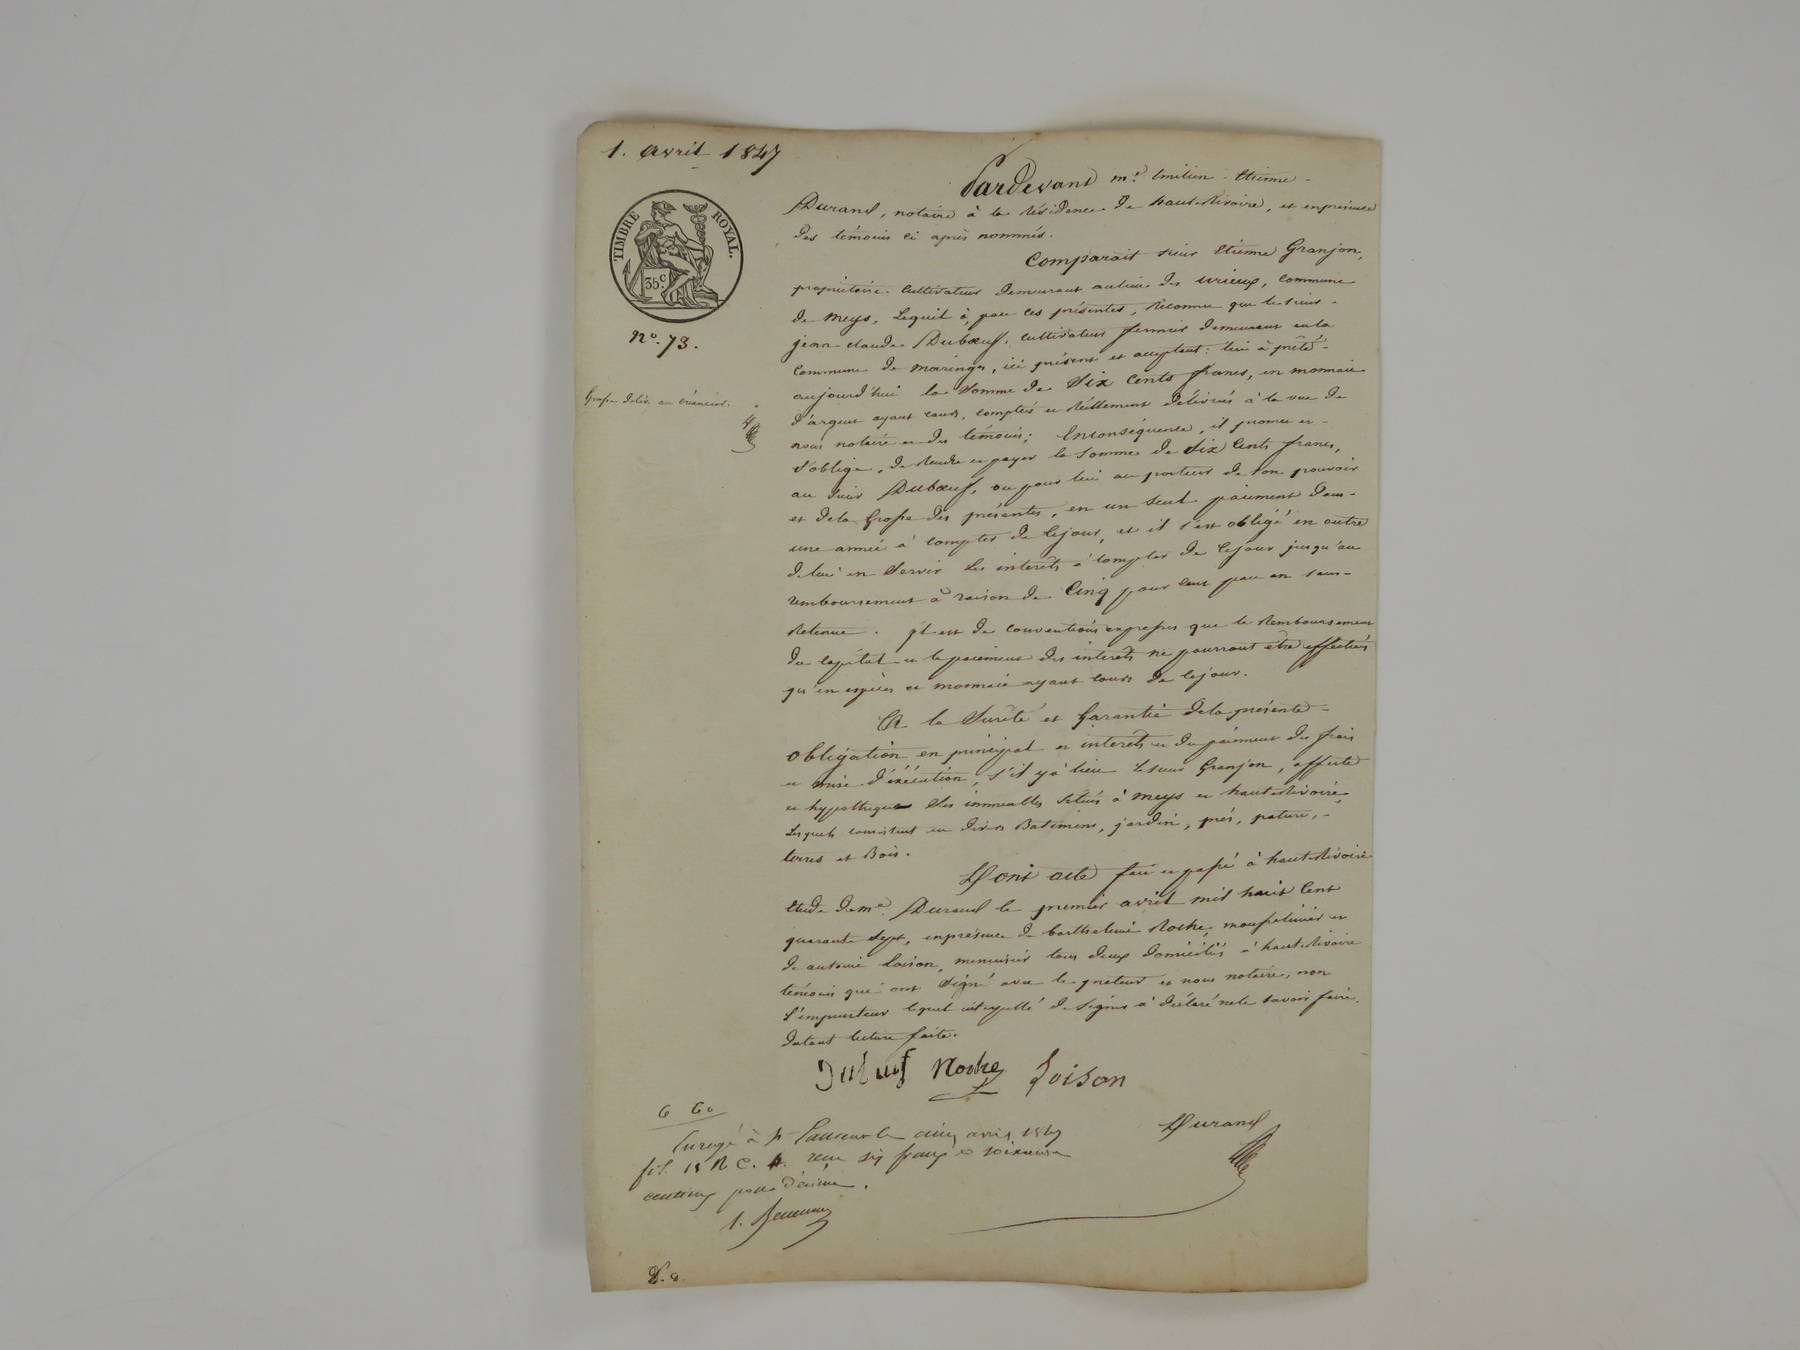 1. avril 1847
Pardevant me. Emilien - Etienne -
Durand, notaire à la Résidence de hauterivoire, et en présence
des témoins ci après nommés.
TIMBRE ROYAL.
35c.
No. 73.
Grosse déliv. au créancier.
Comparait sieur Etienne Granjon,
propriétaire cultivateur demeurant au lieu des urieux, commune
de meys, Lequel à, par ces présentes, Reconnu que le sieur -
jean-claude Duboeuf, cultivateur fermier demeurant en la
commune de maringes, ici présent et acceptant : lui à prêté -
aujourd'hui la Somme de Six Cents francs, en monnaie
d'argent ayant cours, comptés et Réellement délivrés à la vue de
nous notaire et des témoins; Enconséquence, il promet et -
s'oblige, de Rendre et payer la Somme de Six Cents francs,
au Sieur Duboeuf, ou pour lui au porteur de son pouvoir
et dela Grosse des présentes, en un Seul paiement dans -
une année à compter de cejour, et il s'est obligé en outre
de lui en Servir Les interets à compter de cejour jusqu'au
remboursement à raison de Cinq pour cent par an sans -
Retenue. il est de conventions expresses que le Remboursement
du capital et le paiement des interets ne pourront être effectués
qu'en espèces et monnaie ayant cours de cejour.
A la Sureté et Garantie dela présente -
obligation en principal et interets et du paiement des frais
et mise d'éxécution, s'il y à lieu Le sieur Granjon, affecte
et hypothèque Les immeubles Situés à meys et hauterivoire,
Lesquels consistent en divers Batimens, jardin, prés, pature, -
terres et Bois.
Dont acte fait et passé à hauterivoire
Etude de me. Durand le premier avril mil huit Cent
quarante Sept, en présence de barthelemi Roche,
de antoine Loison, menuisier tous deux domiciliés à hauterivoire
témoins qui ont Signé avec le preteur et nous notaire, non
L'emprunteur lequel interpellé de Signer à déclaré nele savoir faire.
dutout lecture faite.
Dubeuf Roche Loison
6 60
Durand
Enregé à St Laurent le cinq avril 1847
fol. 18 R C. 4. reçu six francs et soixante
centimes pour décime.